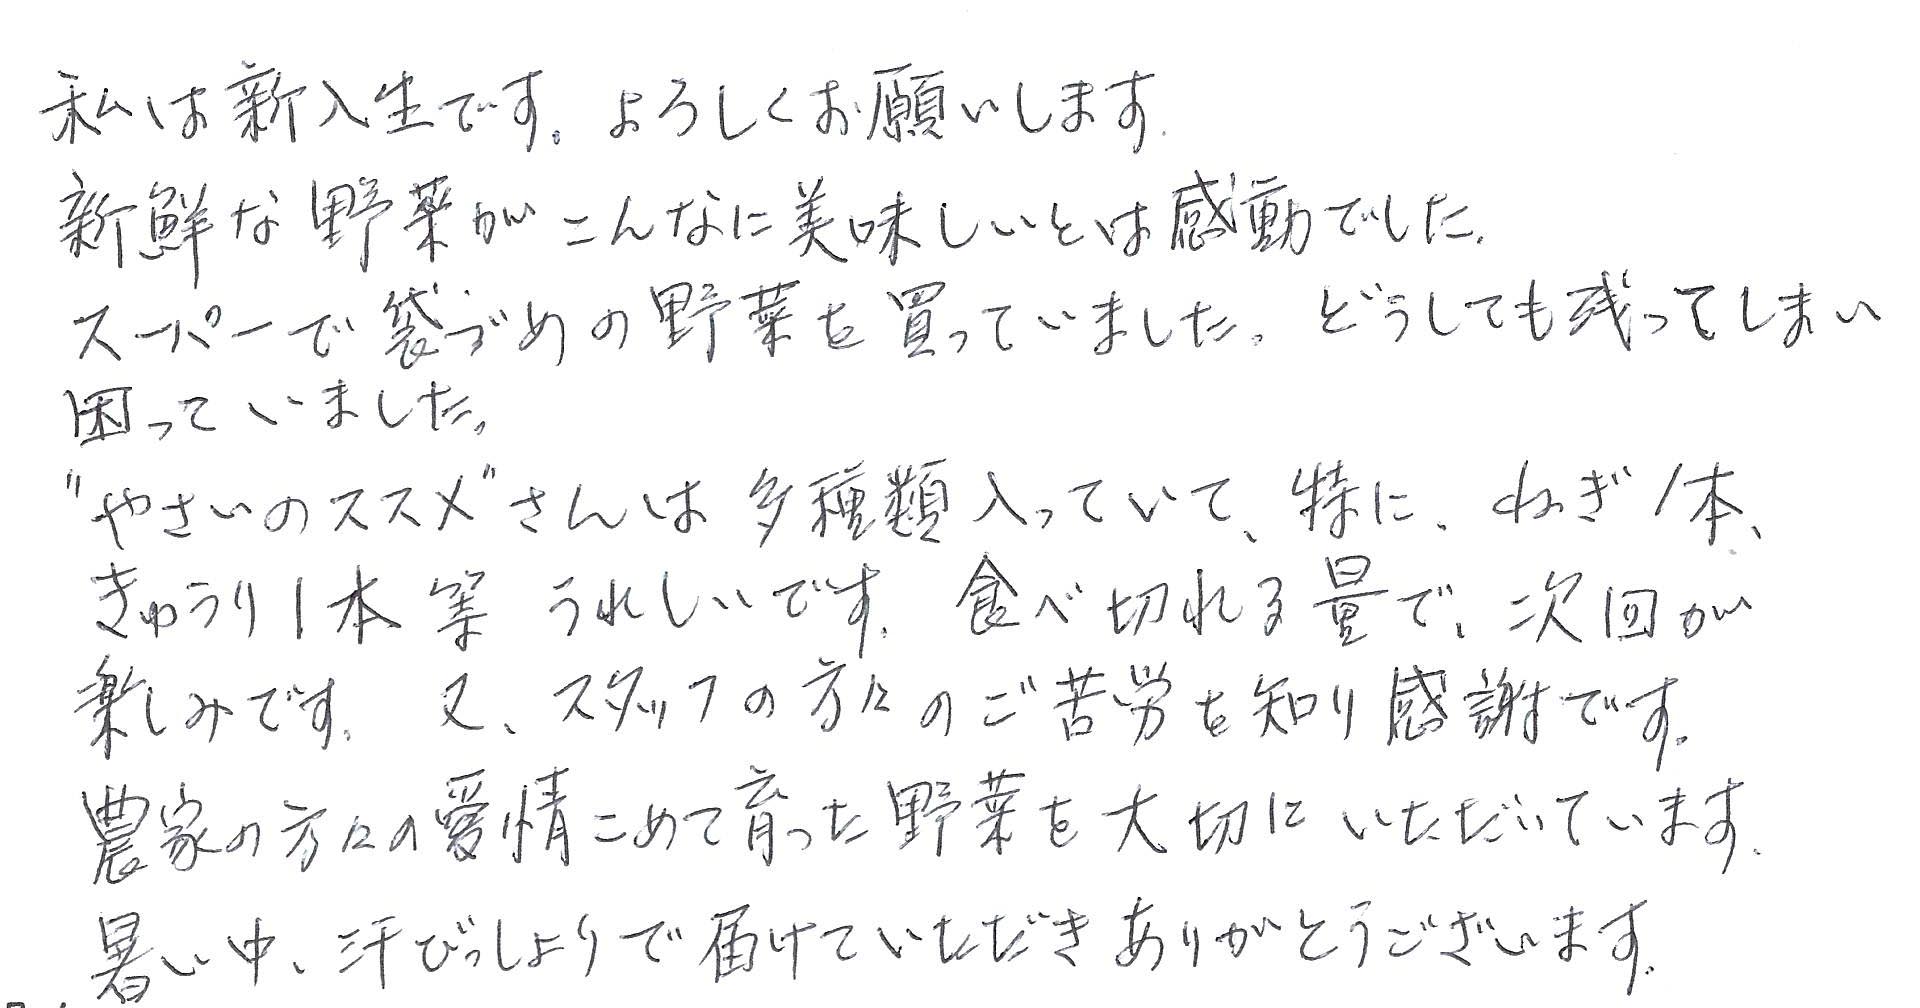 私は新入生です。よろしくお願いします。
新鮮な野菜がこんなに美味しいとは感動でした。
スーパーで袋づめの野菜を買っていました。どうしても残ってしまい
困っていました。
"やさいのススメ"さんは多種類入っていて、特に、ねぎ1本、
きゅうり1本等 うれしいです。食べ切れる量で、次回が
楽しみです。又、スタッフの方々のご苦労を知り感謝です。
農家の方々の愛情こめて育った野菜を大切にいただいています。
暑い中、汗びっしょりで届けていただきありがとうございます。